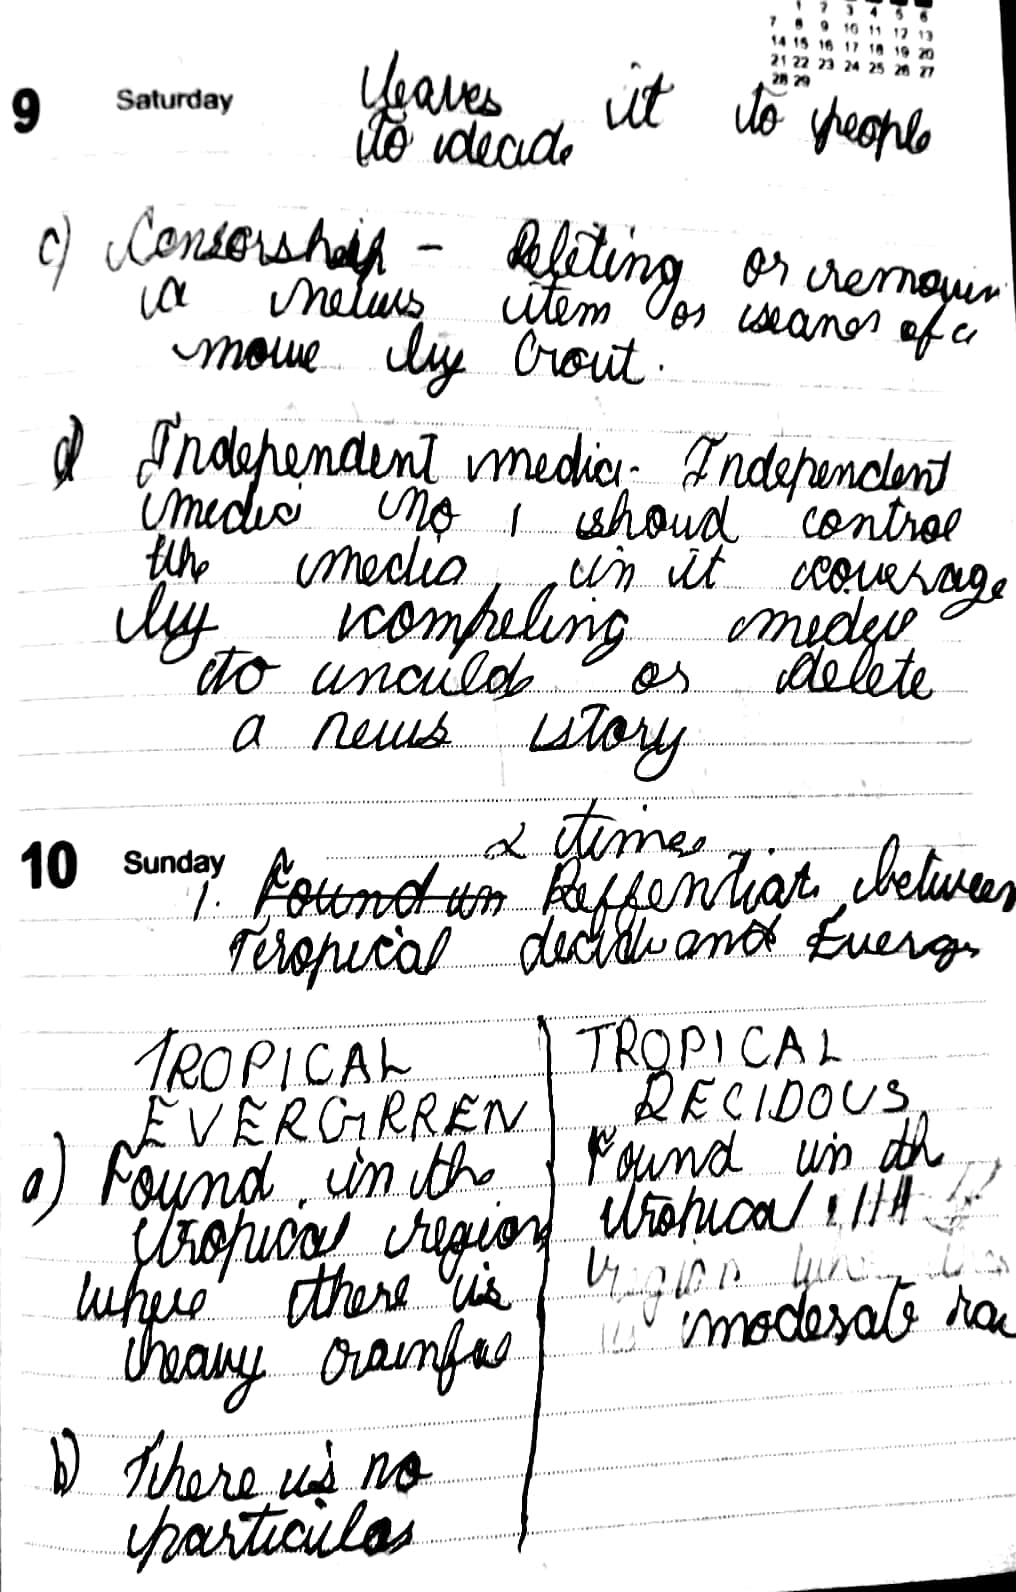 1 2 3 4 5 6
7 8 9 10 11 12 13
14 15 16 17 18 19 20
21 22 23 24 25 26 27
28 29
9 Saturday leaves it to people
to decide
c) Censorship - Deleting or removin
a news item or of a
movie by Crout.
d) Independent media - Independent
media no 1 shoud control
the media in it coverage
by compeling media
to unculde or delete
a news story
2 times
10 Sunday
1. Found in Deffentiat between
Teropical decidu and Everg
TROPICAL TROPICAL
EVERGRREN DECIDOUS
a) Found in the Found in th
tropical region tropical
where there is region whe
heavy rainfal is moderate rai
b) There is no
particular